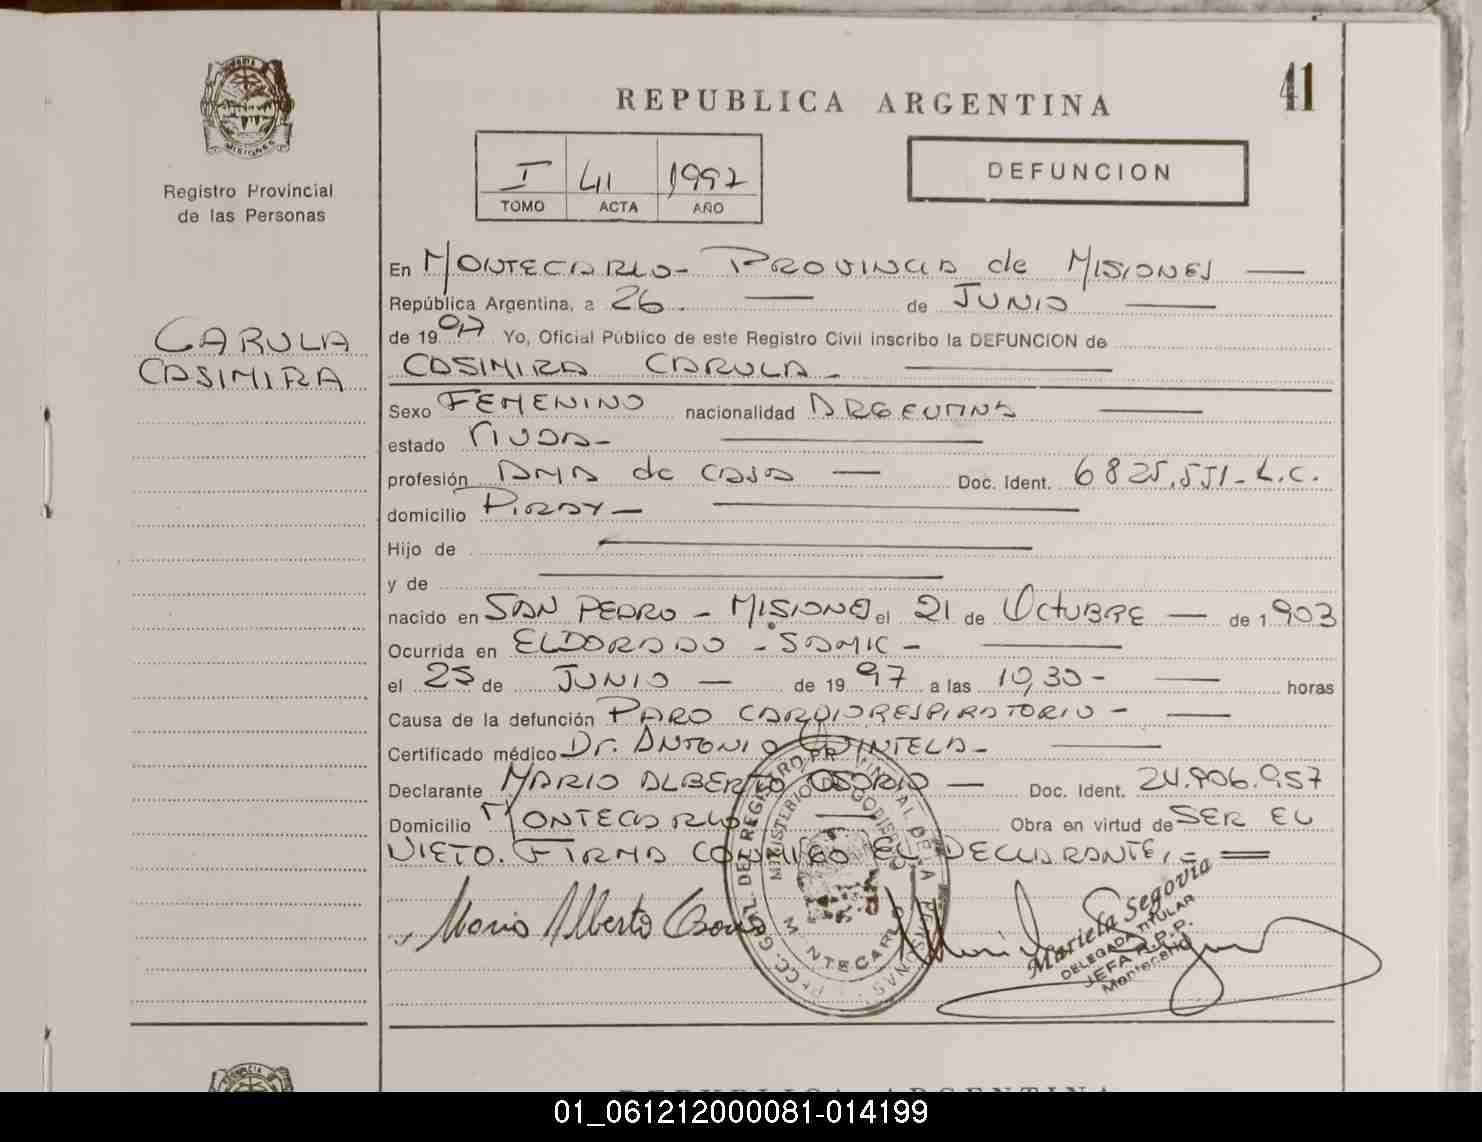 41
REPUBLICA ARGENTINA
MISIONES
Registro Provincial
de las Personas
I 41 1997
TOMO ACTA AÑO
DEFUNCION
CARULA
CASIMIRA
En MONTECARLO - PROVINCIA de MISIONES
República Argentina, a 26 de JUNIO
de 1997 Yo, Oficial Público de este Registro Civil inscribo la DEFUNCION de
CASIMIRA CARULA -
Sexo FEMENINO nacionalidad ARGENTINA
estado VIUDA -
profesión AMA de CASA — Doc. Ident. 6825.551 - L.C.
domicilio PIRAY —
Hijo de
y de
nacido en SAN PEDRO - MISIONES el 21 de OCTUBRE — de 1.903
Ocurrida en ELDORADO - SAMIC -
el 25 de JUNIO — de 1997 a las 10,30 - horas
Causa de la defunción PARO CARDIORESPIRATORIO -
Certificado médico Dr. ANTONIO QUINTELA -
Declarante MARIO ALBERTO OSORIO — Doc. Ident. 24.906.957
Domicilio MONTECARLO Obra en virtud de SER EL
NIETO. FIRMA CONMIGO EL DECLARANTE, =
Mario Alberto Osorio
MINISTERIO DE GOBIERNO
MONTECARLO
Mariela Segovia
DELEGADA TITULAR
JEFA R.P.P.
Montecarlo
REPUBLICA ARGENTINA
01_061212000081-014199